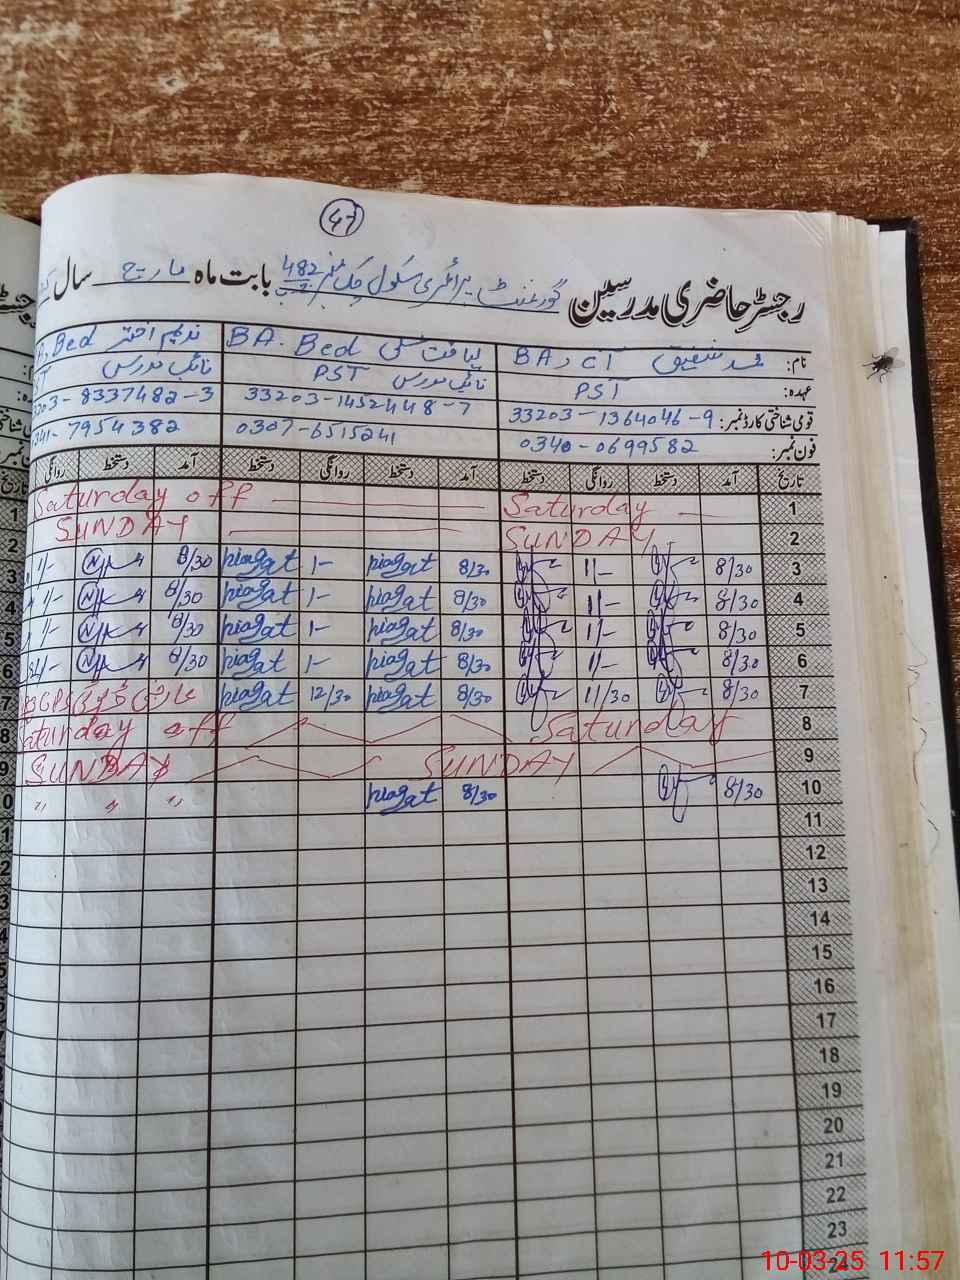 47
رجسٹر حاضری مدرسین گورنمنٹ پرائمری سکول چک نمبر 482 ج ب بابت ماہ مارچ سال
نام: محمد شفیق BA, CT لیاقت علی BA. Bed ندیم اختر Bed
عہدہ: PST نائب مدرس PST نائب مدرس
قومی شناختی کارڈ نمبر: 33203-1364046-9 33203-1452448-7 203-8337482-3
فون نمبر: 0340-0699582 0307-6515241 341-7954382
تاریخ آمد دستخط روانگی دستخط آمد دستخط روانگی دستخط آمد دستخط روانگی
1 Saturday Saturday off
2 SUNDAY SUNDAY
3 8/30 11/- 8/30 liaqat 1/- liaqat 8/30 1/-
4 8/30 11/- 8/30 liaqat 1/- liaqat 8/30 1/-
5 8/30 11/- 8/30 liaqat 1/- liaqat 8/30 1/-
6 8/30 11/- 8/30 liaqat 1/- liaqat 8/30 1/-
7 8/30 11/30 8/30 liaqat 12/30 liaqat
8 Saturday Saturday off
9 SUNDAY SUNDAY
10 8/30 8/30 liaqat " " "
11
12
13
14
15
16
17
18
19
20
21
22
23
24
10-03-25 11:57